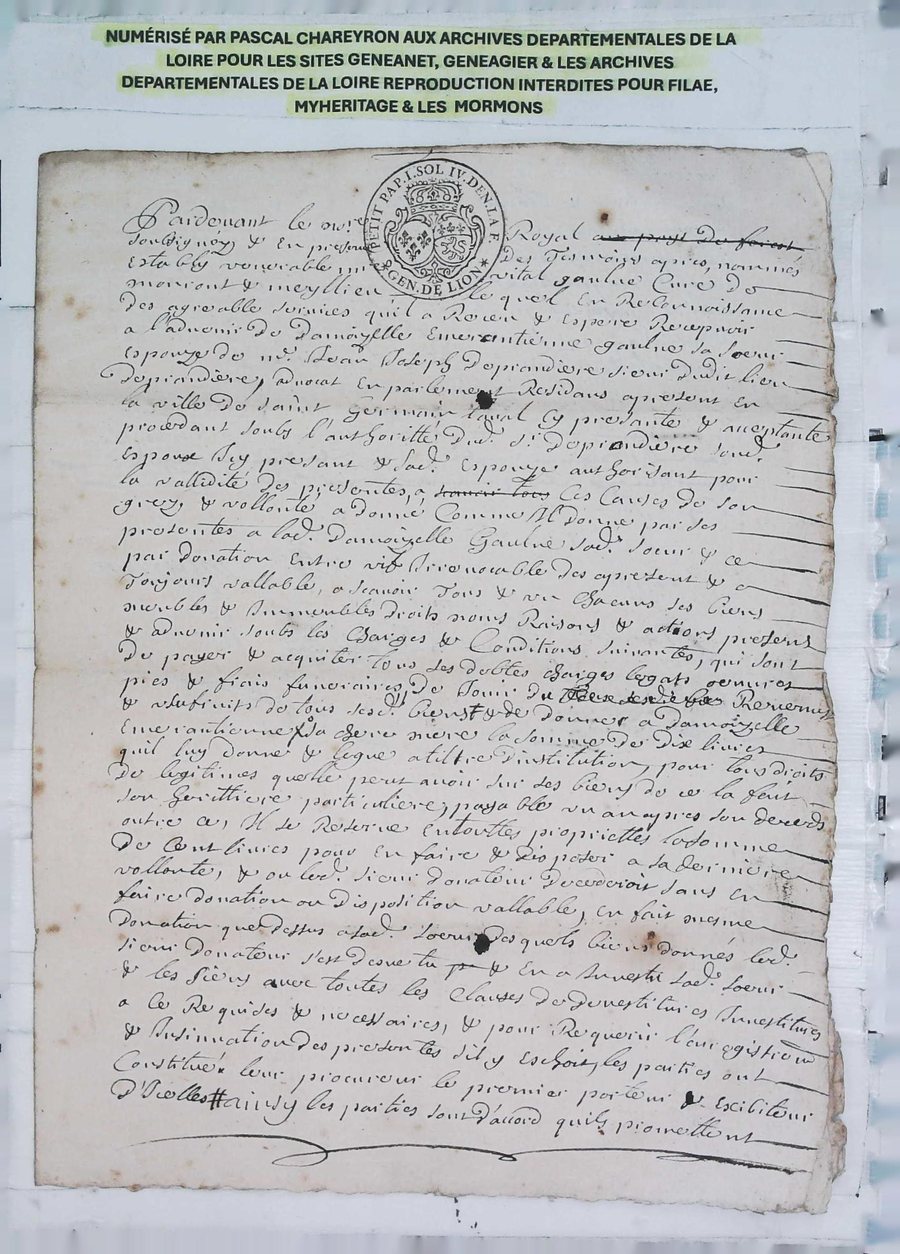 NUMÉRISÉ PAR PASCAL CHAREYRON AUX ARCHIVES DEPARTEMENTALES DE LA
LOIRE POUR LES SITES GENEANET, GENEAGIER & LES ARCHIVES
DEPARTEMENTALES DE LA LOIRE REPRODUCTION INTERDITES POUR FILAE,
MYHERITAGE & LES MORMONS
PETIT PAP. I. SOL IV. DEN. LA F.
GEN. DE LION
Pardevant le no.re Royal au pays de forest
soubsignez & En presence des Tesmoins apres nommés
Estably venerable vital gaulne Cure de
moncont & meyllieu lequel En Reconnoissance
des agreable services quil a Receu & Espere Recepvoir
a l'advenir de Damoizelle Emerantienne gaulne sa soeur
Espouze de mr. Jean Joseph Deprandiere sieur dudit lieu
Deprandiere, advocat En parlement Residans apresent En
la ville de saint Germain laval Cy presante & acceptante
procedant soubs l'authoritté dud. sr. Deprandiere sond.
Espoux Icy presant & lad. Espouze authorisant pour
la vallidité des presentes, a Ces Causes de son
grez, & vollonté a donné Comme Il donne par ses
presentes a lad. Damoizelle Gaulne sad. soeur & ce
par donation Entre vif Irrevocable des apresent & a
Toujours vallable, a scavoir Tous & un chacuns ses biens
meubles & Immeubles droits noms Raisons & actions presents
& advenir soubs les Charges & Conditions suivantes, qui sont
De payer & acquiter tous ses debtes charges legats oeuvres
pies & frais funeraires, De Jouir du Revenus
& usufruits de tous sesd. biens & de donner a Damoizelle
Emerantienne sa chere mere la somme de Dix livres
quil luy donne & legue a tiltre d'institution, pour tous droits
de legitimes quelle peut avoir sur ses biens de ce la fait
son heritiere particuliere, payable un an apres son deceds
outre ce, Il se Reserve En touttes proprietes la somme
De Cent livres pour En faire & disposer a sa derniere
vollonté, & ou led. sieur donateur decederoit sans En
faire donation ou disposition vallable, En fait mesme
Donation que dessus a sad. soeur Desquels biens donnés led.
sieur donateur s'est desvetu & En a Investi sad. soeur
& les siens avec toutes les Clauses de devestitures Investitures
a ce Requises & necessaires, & pour Requerir l'enregistrem
& Insinuation des presentes s'il y Eschoit, les parties ont
Constitué leur procureur le premier porteur & Exibiteur
D'Icelles # ainsy les parties sont d'accord quils promettent